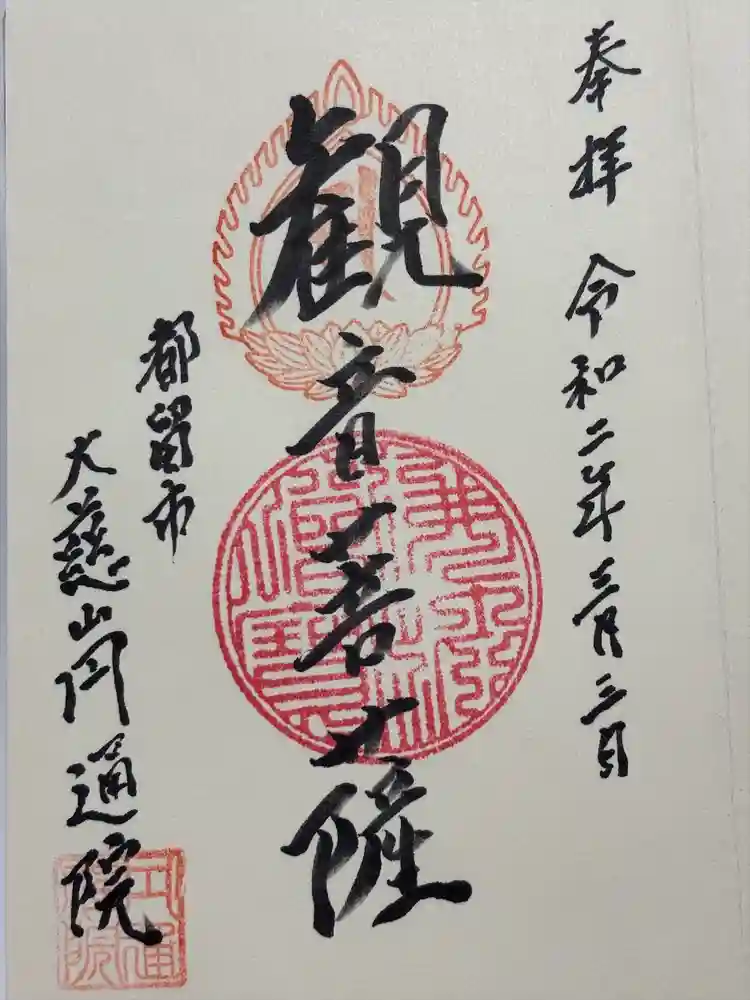 奉拝 令和二年三月三日
観音菩薩
都留市
大慈山円通院